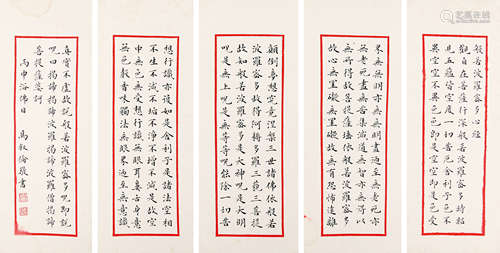 般若波羅蜜多心經
觀自在菩薩行深般若波羅蜜多時照
見五蘊皆空度一切苦厄舍利子色不
異空空不異色色即是空空即是色受
界無無明亦無無明盡乃至無老死亦
無老死盡無苦集滅道無智亦無得以
無所得故菩提薩埵依般若波羅蜜多
故心無罣礙無罣礙故無有恐怖遠離
顛倒夢想究竟涅槃三世諸佛依般若
波羅蜜多故得阿耨多羅三藐三菩提
故知般若波羅蜜多是大神呪是大明
呪是無上呪是無等等呪能除一切苦
想行識亦復如是舍利子是諸法空相
不生不滅不垢不淨不增不減是故空
中無色無受想行識無眼耳鼻舌身意
無色聲香味觸法無眼界乃至無意識
真實不虛故說般若波羅蜜多呪即說
呪曰揭諦揭諦波羅揭諦波羅僧揭諦
菩提薩婆訶
丙申浴佛日 馬叙倫敬書